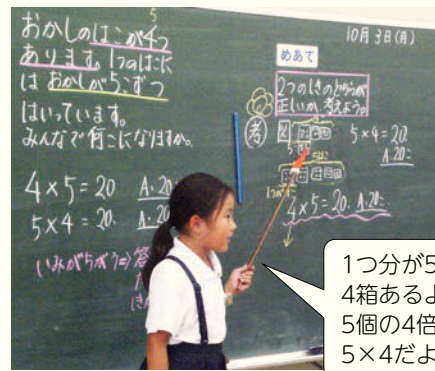 5
おかしのはこが4つ
あります。1つのはこに
は おかしが5こずつ
はいっています。
みんなで何こになりますか。
4×5=20 A.20
5×4=20. A.20
いみがちがう⇒答
10月3日(月)
めあて
2つのしきのどちらが
正しいか、考えよう。
考
5×4=20.
A.20こ
1つ分
4×5=20. A.20こ
1つ分が5
4箱あるよ
5個の4倍
5×4だよ